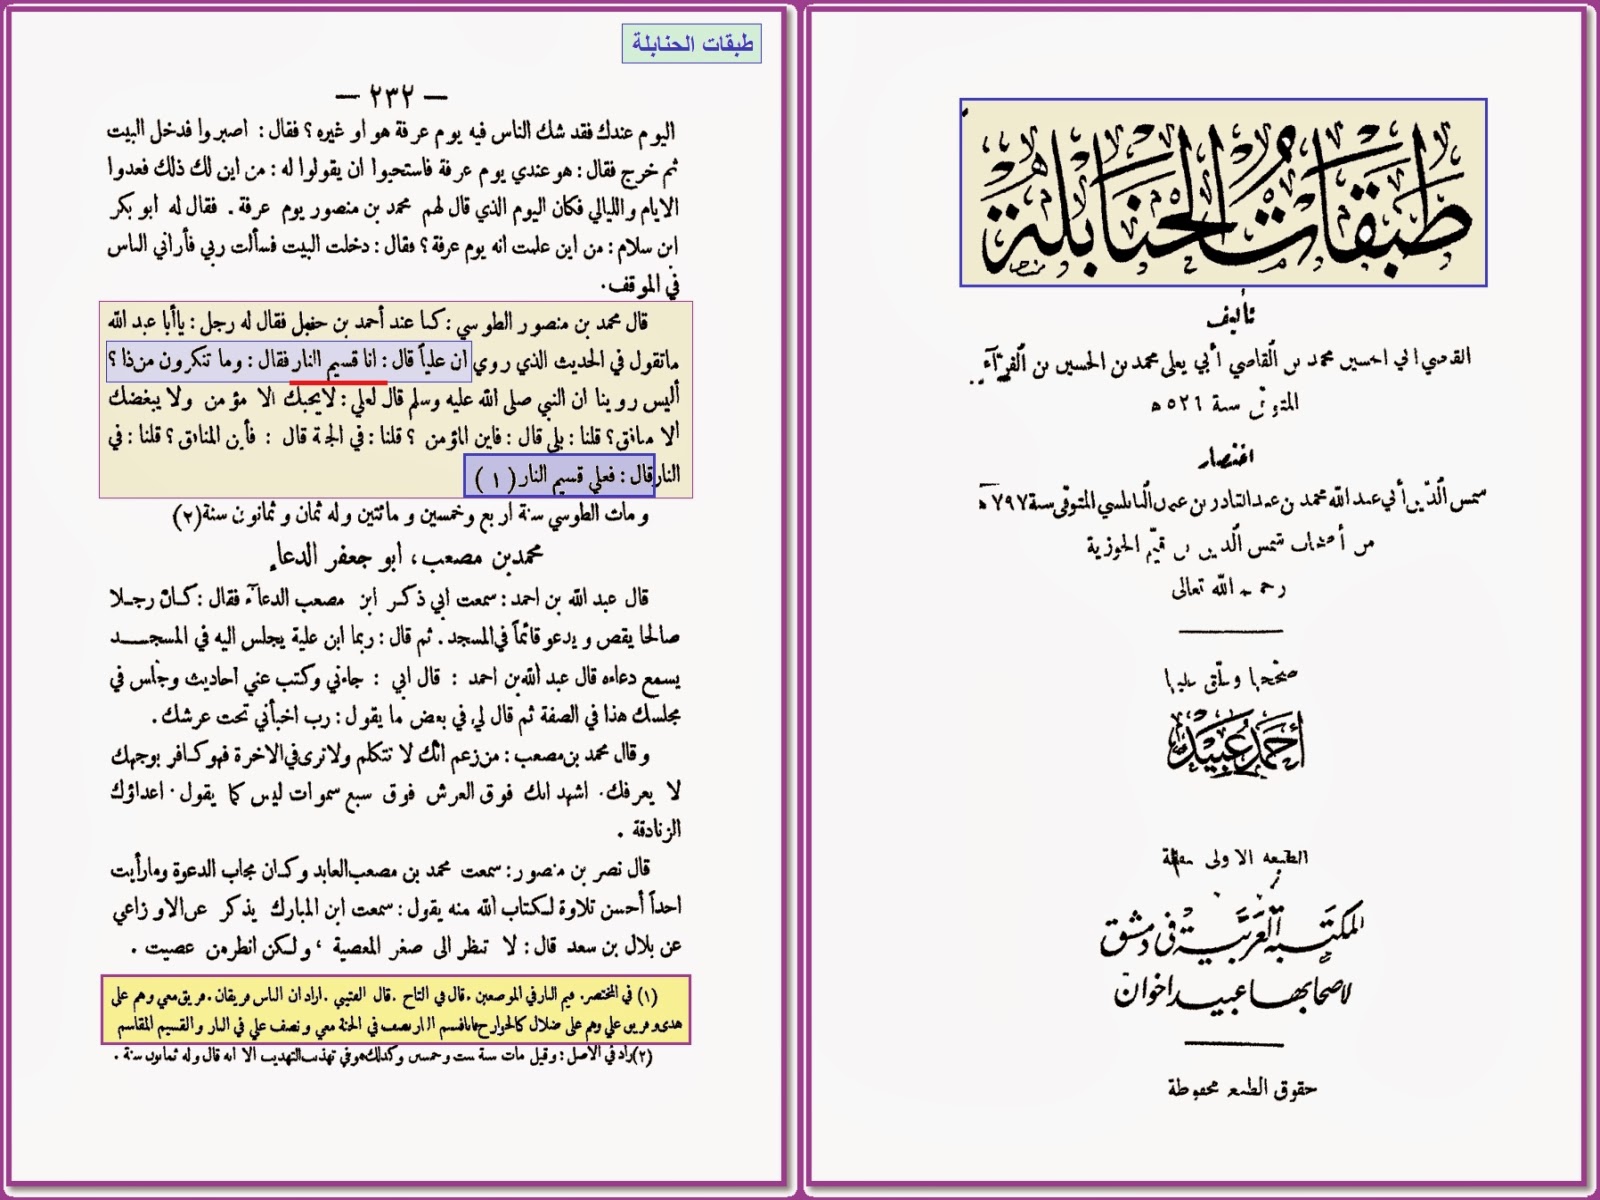 طبقات الحنابلة
— ٢٣٢ —
اليوم عندك فقد شك الناس فيه يوم عرفة هو او غيره ؟ فقال : اصبروا فدخل البيت
ثم خرج فقال : هو عندي يوم عرفة فاستحيوا ان يقولوا له : من اين لك ذلك فعدوا
الايام والليالي فكان اليوم الذي قال لهم محمد بن منصور يوم عرفة . فقال له ابو بكر
ابن سلام : من اين علمت انه يوم عرفة ؟ فقال : دخلت البيت فسألت ربي فأراني الناس
في الموقف .
قال محمد بن منصور الطوسي : كنا عند أحمد بن حنبل فقال له رجل : ياأبا عبد الله
ماتقول في الحديث الذي روي ان علياً قال : انا قسيم النار فقال : وما تنكرون من ذا ؟
أليس روينا ان النبي صلى الله عليه وسلم قال لعلي : لايحبك الا مؤمن ولا يبغضك
الا منافق ؟ قلنا : بلى قال : فاين المؤمن ؟ قلنا : في الجنة قال : فأين المنافق ؟ قلنا : في
النار قال : فعلي قسيم النار (١)
ومات الطوسي سنة اربع وخمسين ومائتين وله ثمان وثمانون سنة (٢)
محمد بن مصعب ، ابو جعفر الدعاء
قال عبد الله بن احمد : سمعت ابي ذكر ابن مصعب الدعاء فقال : كان رجلا
صالحا يقص ويدعو قائماً في المسجد . ثم قال : ربما ابن علية يجلس اليه في المسجد
يسمع دعاءه قال عبد الله بن احمد : قال ابي : جاءني وكتب عني احاديث وجلس في
مجلسك هذا في الصفة ثم قال لي في بعض ما يقول : رب اخبأني تحت عرشك .
وقال محمد بن مصعب : من زعم انك لا تتكلم ولا ترى في الاخرة فهو كافر بوجهك
لا يعرفك . اشهد انك فوق العرش فوق سبع سموات ليس كما يقول . اعداؤك
الزنادقة .
قال نصر بن منصور : سمعت محمد بن مصعب العابد وكان مجاب الدعوة وما رأيت
احداً أحسن تلاوة لكتاب الله منه يقول : سمعت ابن المبارك يذكر عن الاوزاعي
عن بلال بن سعد قال : لا تنظر الى صغر المعصية ، ولكن انظر من عصيت .
(١) في المختصر . قسيم النار في الموضعين . قال في التاج . قال القتيبي . اراد ان الناس فريقان . فريق معي وهم على
هدى وفريق علي وهم على ضلال كالخوارج فانا قسيم النار نصف في الجنة معي ونصف علي في النار والقسيم المقاسم
(٢) زاد في الاصل : وقيل مات سنة ست وخمسين وكذلك هو في تهذيب التهذيب الا انه قال وله ثمانون سنة .
طبقات الحنابلة
تأليف
القاضي ابي الحسين محمد بن القاضي أبي يعلى محمد بن الحسين بن الفراء
المتوفى سنة ٥٢٦ ه
اختصار
شمس الدين أبي عبد الله محمد بن عبد القادر بن عثمان النابلسي المتوفى سنة ٧٩٧ ه
من أصحاب شمس الدين بن قيم الجوزية
رحمه الله تعالى
صححها وعلق عليها
أحمد عبيد
الطبعة الاولى
المكتبة العربية في دمشق
لاصحابها عبيد اخوان
حقوق الطبع محفوظة